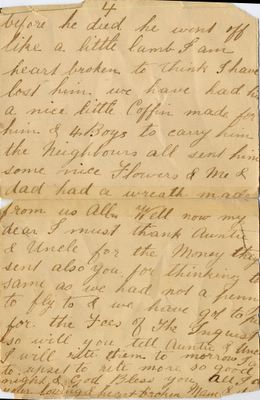 4
before he died he went off
like a little lamb I am
heart broken to think I have
lost him. we have had him
a nice little Coffin made for
him & 4 Boys to carry him
the Neighbours all sent him
some nice Flowers & Me &
dad had a wreath made
from us All. Well now my
dear I must thank Auntie
& Uncle for the Money they
sent also you for thinking
same as we had not a penny
to fly to & we have got to
for the Foes of The Inquest
so will you tell Auntie & Uncle
I will rite them to morrow
to upset to rite more so good
night & God Bless you All
your loving & heart broken Mam